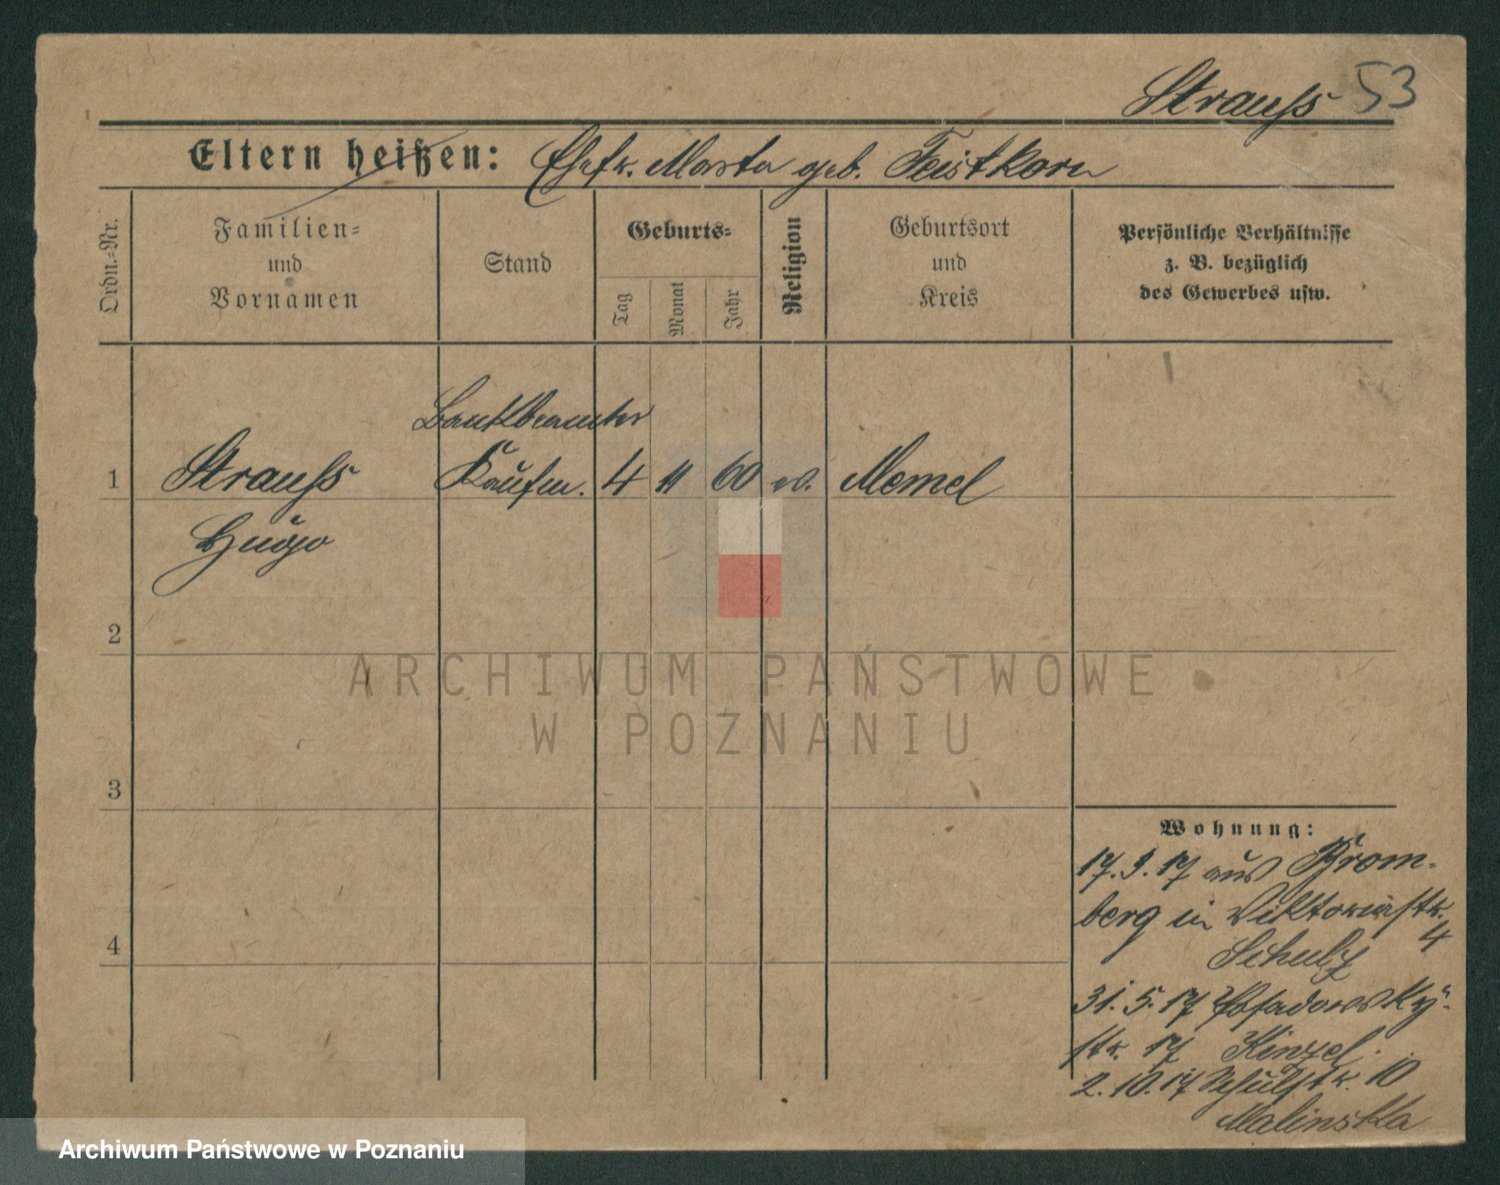 Strauss 53
Eltern heißen: Ehefr. Marta geb. Feistkorn
Ordn.-Nr.
Familien-
und
Vornamen
Stand
Geburts-
Tag
Monat
Jahr
Religion
Geburtsort
und
Kreis
Persönliche Verhältnisse
z. B. bezüglich
des Gewerbes usw.
Bankbeamter
1 Strauss Kaufm. 4 11 60 ev. Memel
Hugo
2
3
4
Wohnung:
17.9.17 aus Brom-
berg in Viktoriastr.
4
Schulz
31.5.17 Posadowsky-
str. 17 Kinzel
2.10.17 Schulstr. 10
Malinska
ARCHIWUM PAŃSTWOWE
W POZNANIU
Archiwum Państwowe w Poznaniu